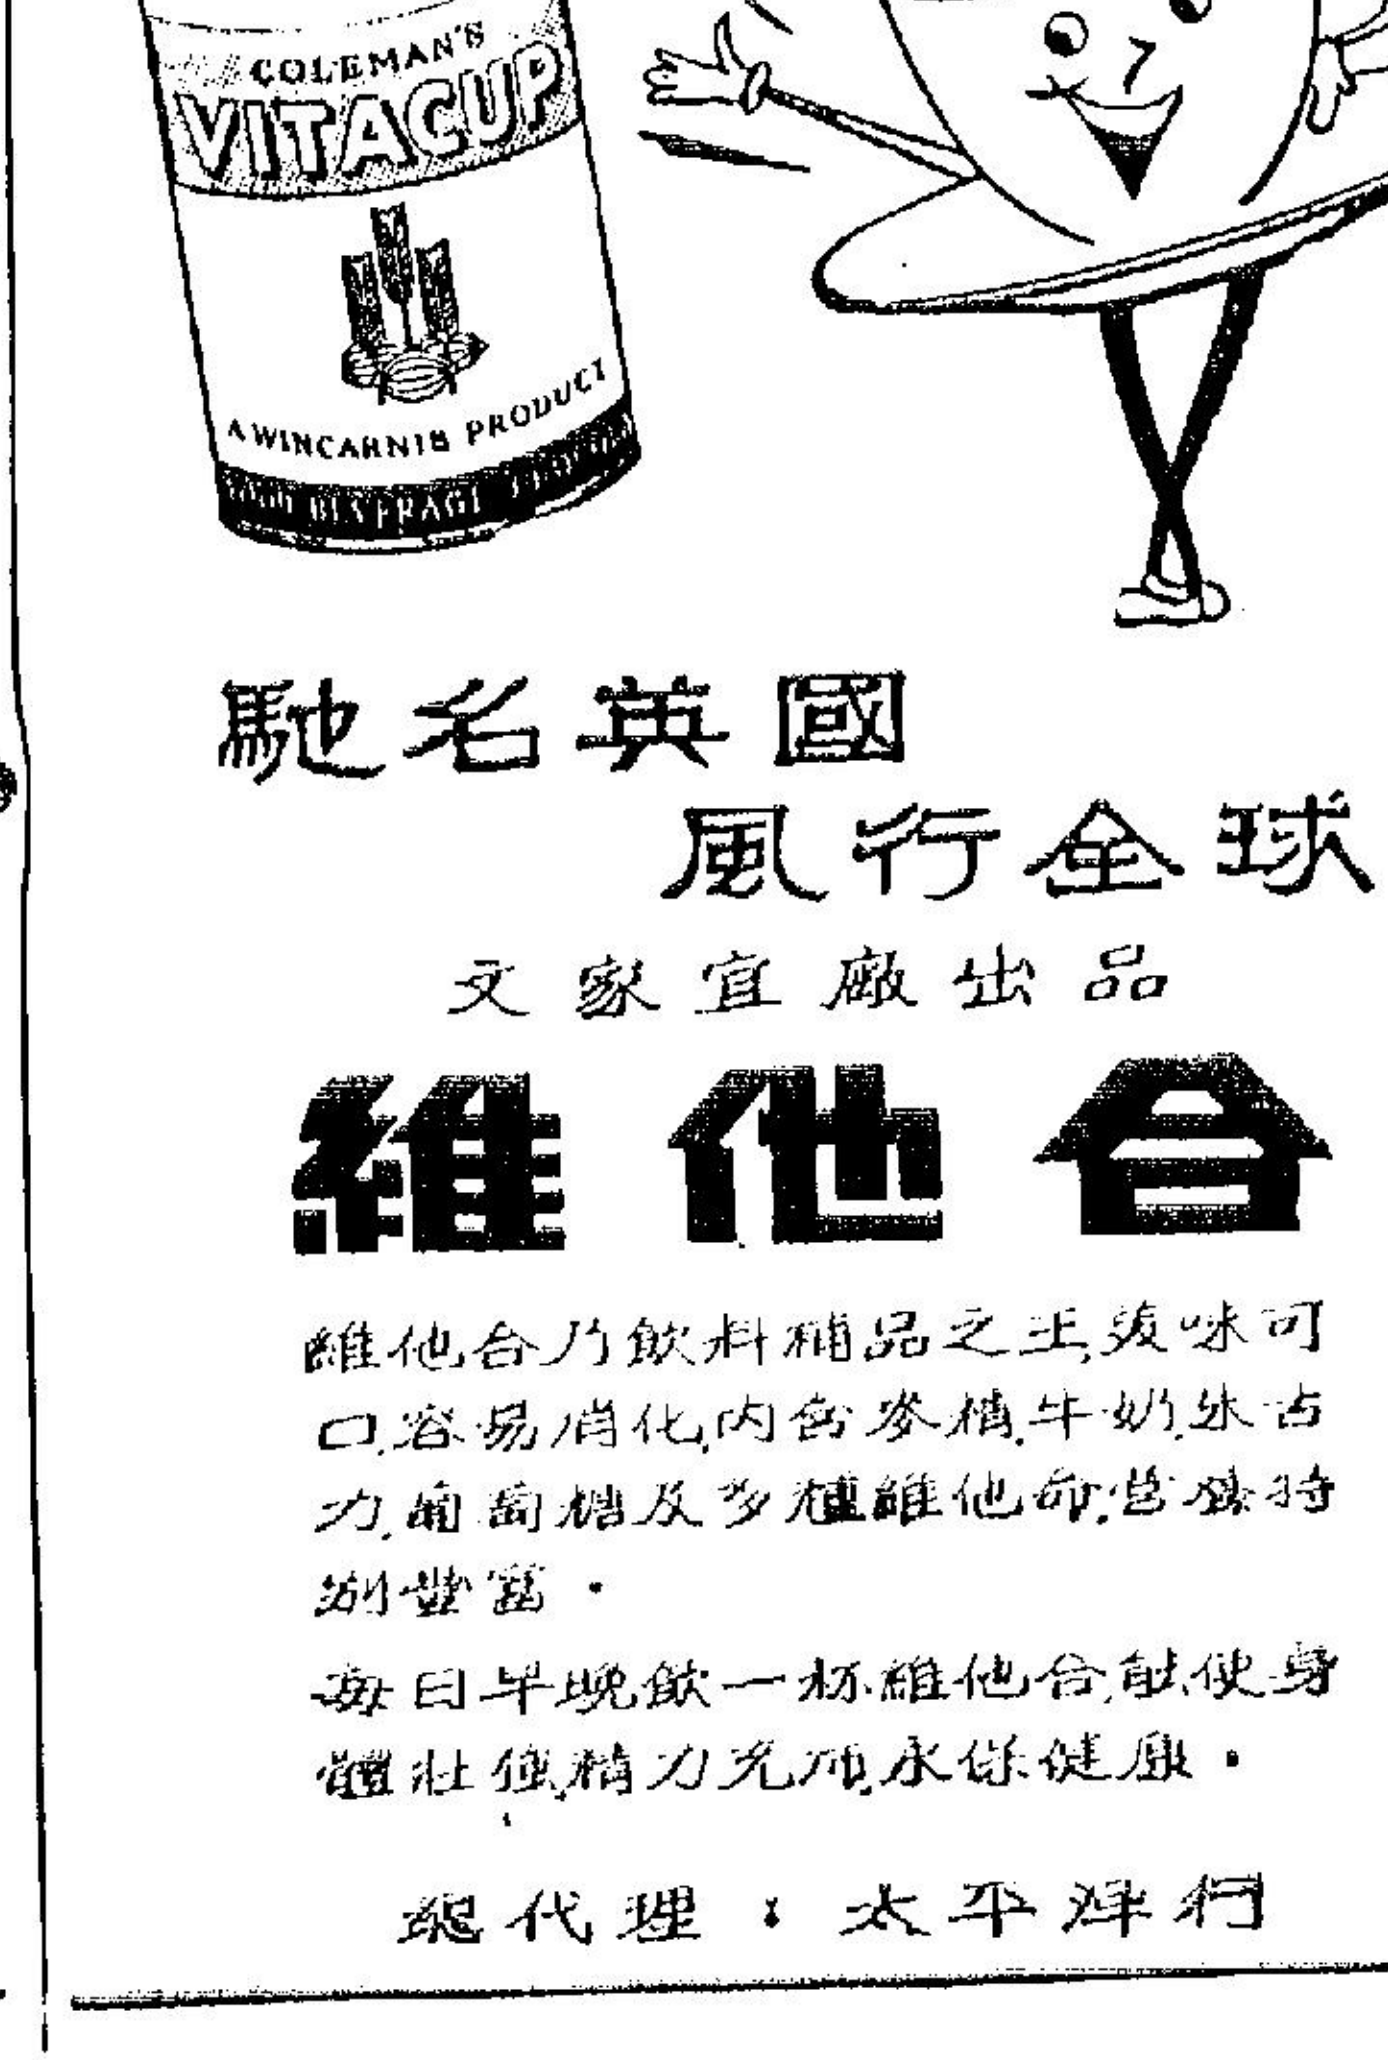 COLEMAN'S
VITACUP
A WINCARNIS PRODUCT
FOOD BEVERAGE
馳名英國
風行全球
文家宜廠出品
維他合
維他合乃飲料補品之王,爽味可
口,容易消化,內含麥精,牛奶,朱古
力,葡萄糖及多種維他命,營養特
別豐富·
每日早晚飲一杯維他合,能使身
體壯強,精力充沛,永保健康·
總代理:太平洋行